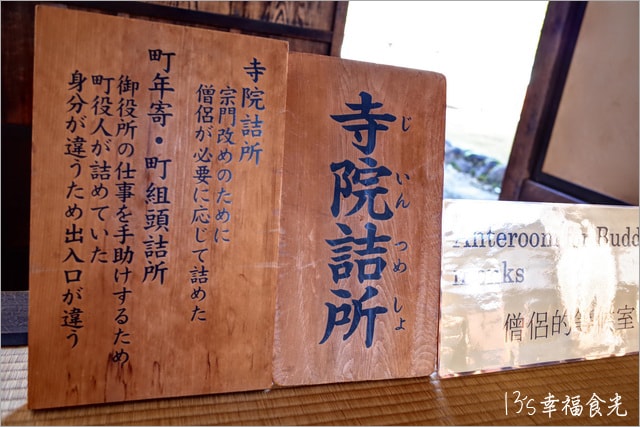 寺院詰所
宗門改めのために
僧侶が必要に応じて詰めた
町年寄・町組頭詰所
御役所の仕事を手助けするため
町役人が詰めていた
身分が違うため出入口が違う
寺院詰所
じ いん つめ しょ
Anteroom Budd
僧侶的 室
13's幸福食光